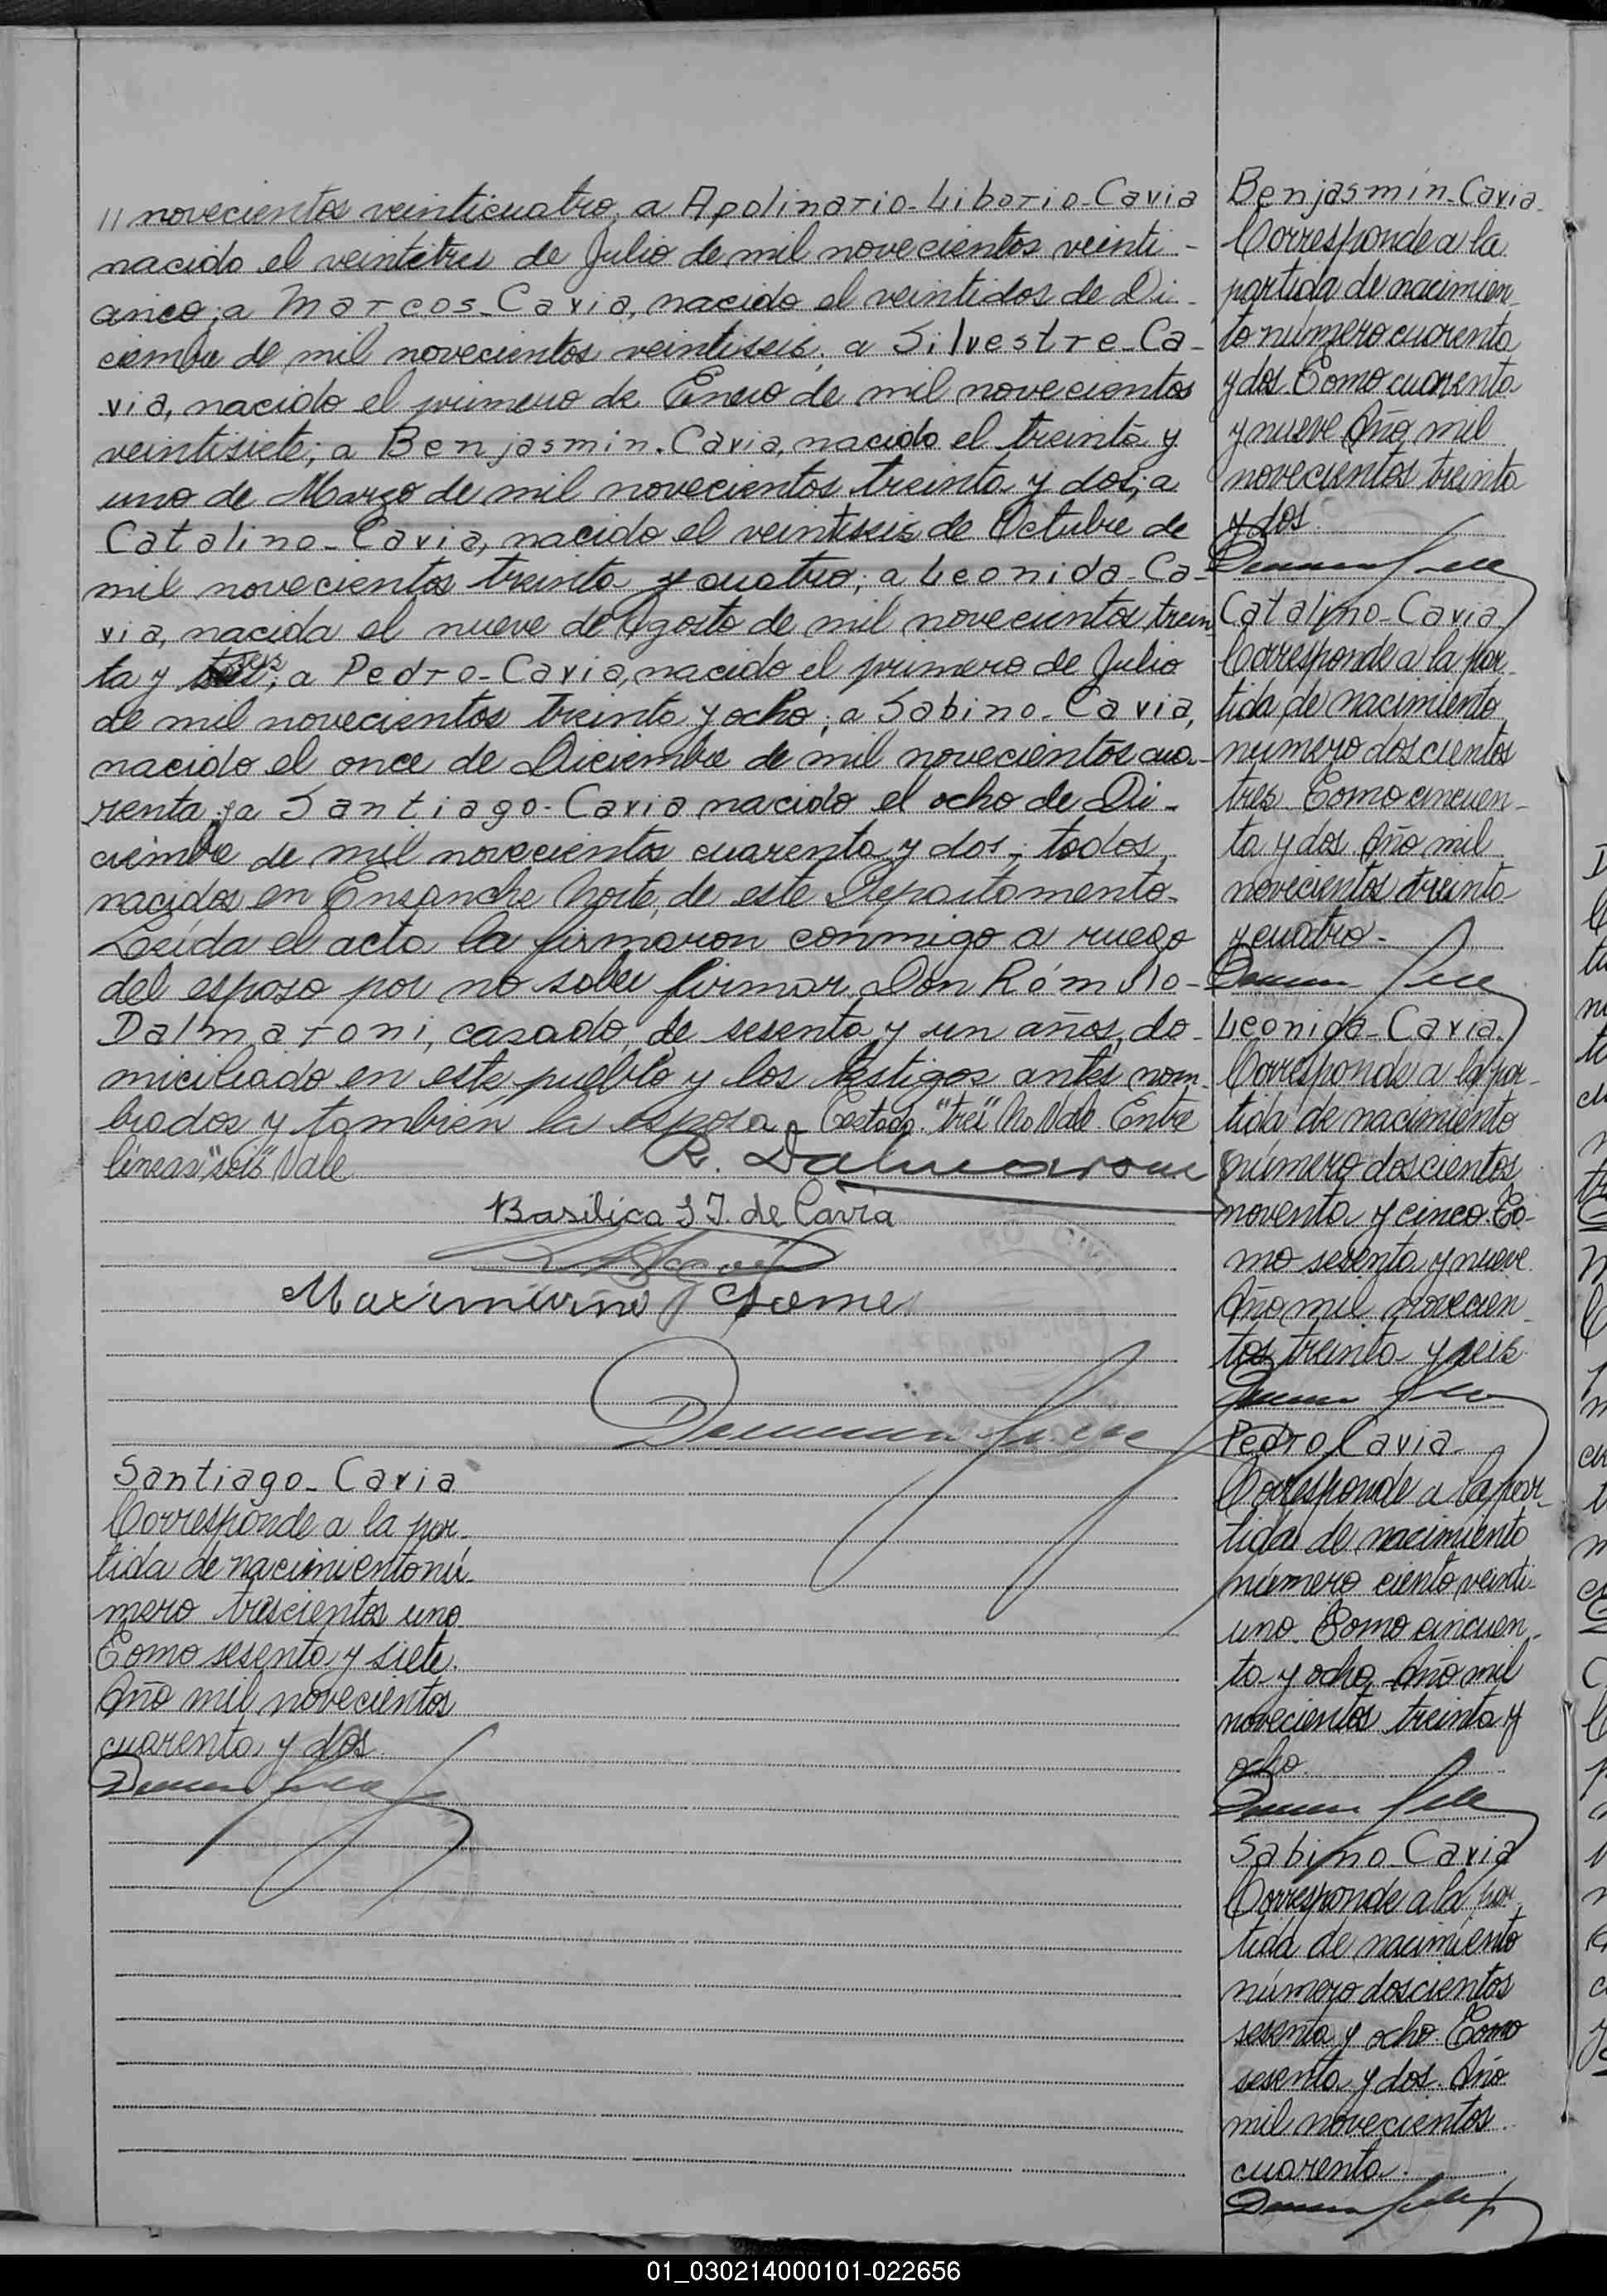 // novecientos veinticuatro; a Apolinario-Liborio-Cavia
nacido el veintitres de Julio de mil novecientos veinti-
cinco; a Marcos-Cavia, nacido el veintidos de Di-
ciembre de mil novecientos veintiseis; a Silvestre-Ca-
via, nacido el primero de Enero de mil novecientos
veintisiete; a Benjasmin-Cavia, nacido el treinta y
uno de Marzo de mil novecientos treinta y dos; a
Catalino-Cavia, nacido el veintiseis de Octubre de
mil novecientos treinta y cuatro; a Leonida-Ca-
via, nacida el nueve de Agosto de mil novecientos trein
ta y seis; a Pedro-Cavia, nacido el primero de Julio
de mil novecientos treinta y ocho; a Sabino-Cavia,
nacido el once de Diciembre de mil novecientos cua-
renta; a Santiago-Cavia nacido el ocho de Di-
ciembre de mil novecientos cuarenta y dos; todos
nacidos en Ensanche Norte, de este Departamento.
Leída el acta la firmaron conmigo a ruego
del esposo por no saber firmar, Don Rómulo-
Dalmaroni, casado, de sesenta y un años, do-
miciliado en este pueblo y los testigos antes nom-
brados y también la esposa. Testado: "tres" No Vale. Entre
líneas "seis" Vale
R. Dalmaroni
Basilica I. de Cavia
Maximiano Gomes
Santiago-Cavia
Corresponde a la par-
tida de nacimiento nú-
mero trescientos uno
Tomo sesenta y siete.
Año mil novecientos
cuarenta y dos.
Benjasmin-Cavia-
Corresponde a la
partida de nacimien-
to número cuarenta
y dos. Tomo cuarenta
y nueve Año mil
novecientos treinta
y dos.
Catalino-Cavia-
Corresponde a la par-
tida de nacimiento
número doscientos
tres. Tomo cincuen-
ta y dos. Año mil
novecientos treinta
y cuatro.
Leonida-Cavia.
Corresponde a la par-
tida de nacimiento
número doscientos
noventa y cinco. To-
mo sesenta y nueve
Año mil novecien-
tos treinta y seis.
Pedro Cavia-
Corresponde a la par-
tida de nacimiento
número ciento veinti-
uno. Tomo cincuen-
ta y ocho, Año mil
novecientos treinta y
ocho.
Sabino-Cavia
Corresponde a la par
tida de nacimiento
número doscientos
sesenta y ocho. Tomo
sesenta y dos. Año
mil novecientos
cuarenta.
01_030214000101-022656